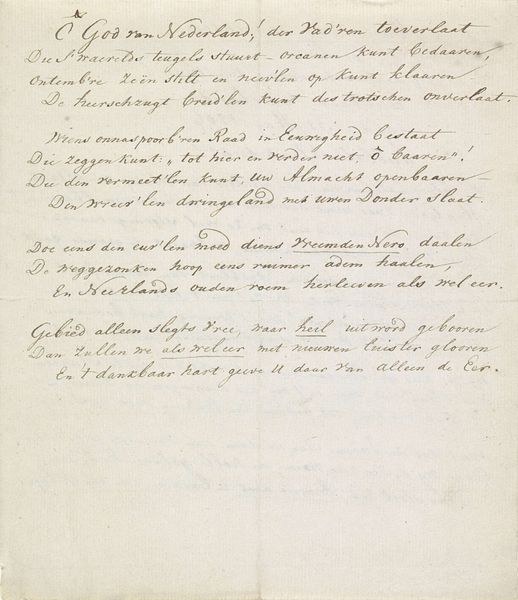 Ô God van Nederland,! der Vad'ren toeverlaat
Die S'waerelds teugels stuurt - orcanen kunt bedaaren,
ontembre Zeën stilt en nev'len op kunt klaaren
De heerschzugt breid'len kunt des trotschen onverlaat.
Wiens onnaspoorb'ren Raad in Eeuwigheid bestaat
Die zeggen kunt: „tot hier en verder niet, ô baaren"!
Die den vermeet'len kunt, uw Almacht openbaaren -
Den wreev'len dwingeland met uwen Donder slaat.
Doe eens den euv'len moed diens Vreemden Nero daalen
De weggezonken hoop eens ruimer adem haalen,
En Neêrlands ouden roem herleeven als wel eer.
Gebied alleen slegts Vree, waar heil uit word gebooren
Dan zullen we als wel eer met nieuwen luister glooren
En 't dankbaar hart geeve U daar van alleen de Eer.